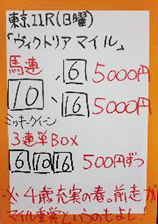 東京11R(日曜)
「ヴィクトリアマイル」
馬連 6 5000円
10 、16 5000円
ミッキークイーン
3連単BOX
6 10 16 500円ずつ
※4歳充実の春。前走が
マイル重賞というのもよし!